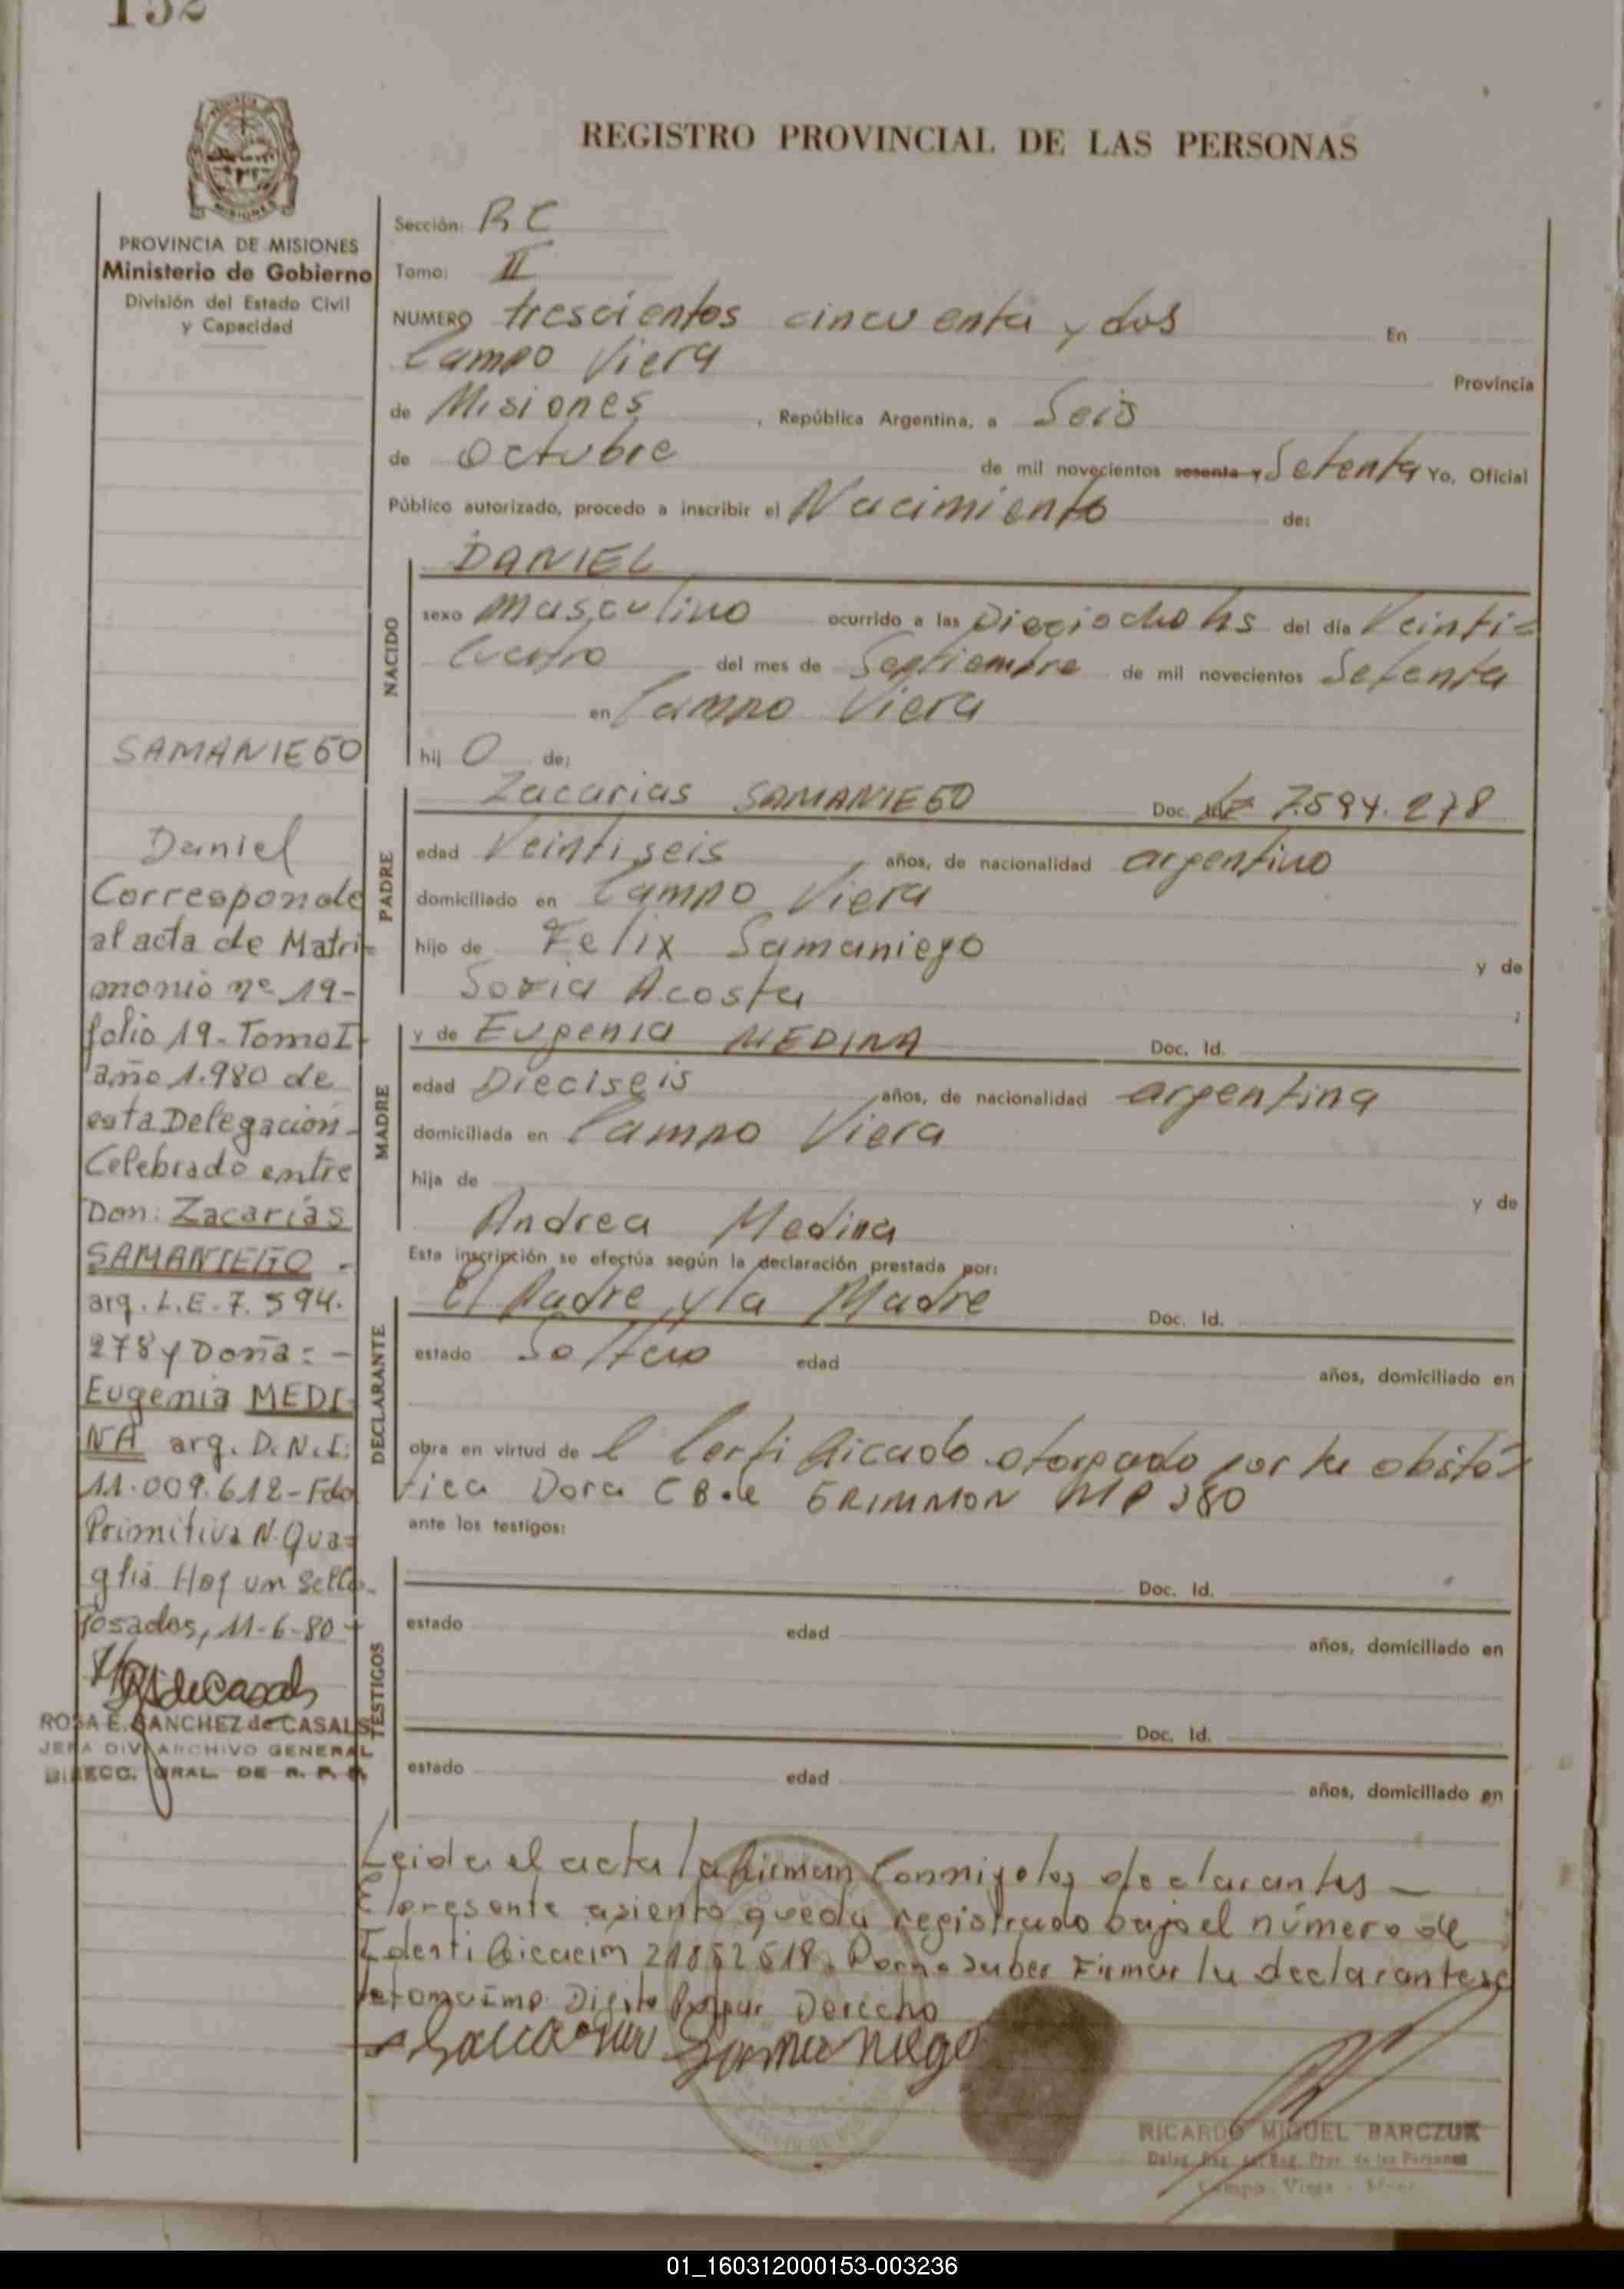 152
REGISTRO PROVINCIAL DE LAS PERSONAS
MISIONES
PROVINCIA DE MISIONES
Ministerio de Gobierno
División del Estado Civil
y Capacidad
SAMANIEGO
Daniel
Corresponde
al acta de Matri-
monio nº 19-
folio 19-Tomo I
año 1.980 de
esta Delegación
Celebrado entre
Don: Zacarías
SAMANIEGO -
arg. L.E-7.594.
278 y Doña: -
Eugenia MEDI-
NA arg. D.N.I:
11.009.612-Fdo
Primitiva N. Qua-
glia Hay un sello-
Posadas, 11-6-80
ROSA E. SANCHEZ de CASALS
JEFA DIV ARCHIVO GENERAL
DIRECC. GRAL. DE R. P. P.
Sección: RC
Tomo: II
NUMERO trescientos cincuenta y dos En
Campo Viera Provincia
de Misiones, República Argentina, a Seis
de Octubre de mil novecientos sesenta y Setenta Yo, Oficial
Público autorizado, procedo a inscribir el Nacimiento de:
NACIDO
DANIEL
sexo masculino ocurrido a las Dieciocho hs del día Veinti=
cuatro del mes de Septiembre de mil novecientos Setenta
en Campo Viera
hij O de:
PADRE
Zacarias SAMANIEGO Doc. LE 7.594.278
edad Veintiseis años, de nacionalidad argentino
domiciliado en Campo Viera
hijo de Felix Samaniego y de
Acosta ;
MADRE
y de Eugenia MEDINA Doc. Id.
edad Dieciseis años, de nacionalidad argentina
domiciliada en Campo Viera
hija de y de
Andrea Medina
Esta inscripción se efectúa según la declaración prestada por:
DECLARANTE
El Padre y la Madre Doc. Id.
estado Soltero edad años, domiciliado en
obra en virtud de l Certificado otorgado por la obsté-
trica Dora C B de GRIMMON MP 380
ante los testigos:
TESTIGOS
Doc. Id.
estado edad años, domiciliado en
Doc. Id.
estado edad años, domiciliado en
Leida el acta la firman Conmigo los declarantes -
El presente asiento queda registrado bajo el número de
Identificacion 21852518. Por no saber Firmar la declarante se
Digito Pulgar Derecho
Zacarias Samaniego
RICARDO MIGUEL BARCZUK
Campo Viera - Mnes.
01_160312000153-003236